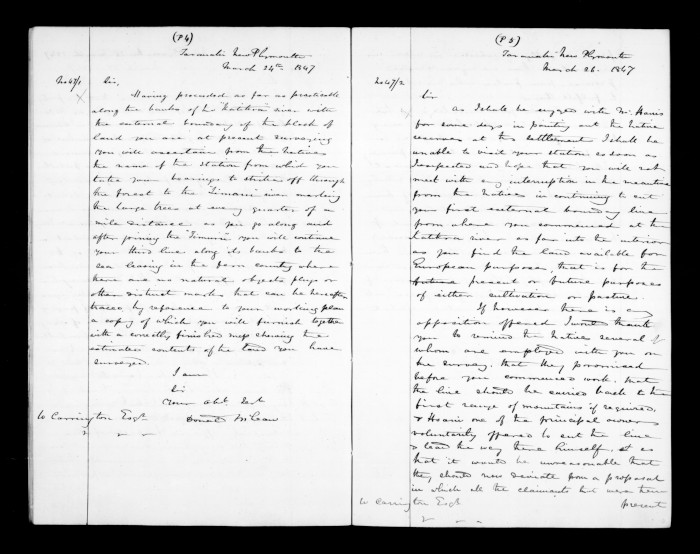 (P4)
Taranaki New Plymouth
March 24th 1847
No 47/1
Sir,
Having proceeded as far as practicable
along the banks of the river with
the external boundary of the block of
land you are at present surveying
you will ascertain from the Natives
the name of the station from which you
take your bearings to strike off through
the forest to the Timaru river marking
the large trees at every quarter of a
mile distance as you go along and
after joining the Timaru you will continue
your third line along its banks to the
sea leaving in the fern country where
there are no natural objects plugs or
other distinct marks that can be hereafter
traced by reference to your working plan
a copy of which you will furnish together
with a correctly finished map shewing the
estimated contents of the land you have
surveyed.
I am
Sir
Your Obt. Svt
Donald McLean
W Carrington Esqr
(P5)
Taranaki New Plymouth
March 26. 1847
No 47/2
Sir
As I shall be engaged with Mr. Harris
for some days in pointing out the Native
reserves at this settlement I shall be
unable to visit your station as soon as
I expected and hope that you will not
meet with any interruption in the meantime
from the Natives in continuing to cut
your first external boundary line
from where you commenced at the
river as far into the interior
as you find the land available for
European purposes, that is for the
future present or future purposes
of either cultivation or pasture.
If however there is any
opposition offered I would thank
you to remind the Natives several of
whom are employed with you on
the survey, that they promised
before you commenced work, that
the line should be carried back to the
first range of mountains if required,
& one of the principal owners
voluntarily offered to cut the line
& lead the way there himself, & as
that it would be unreasonable that
they should now deviate from a proposal
in which all the claimants that were then
present
W Carrington Esqr